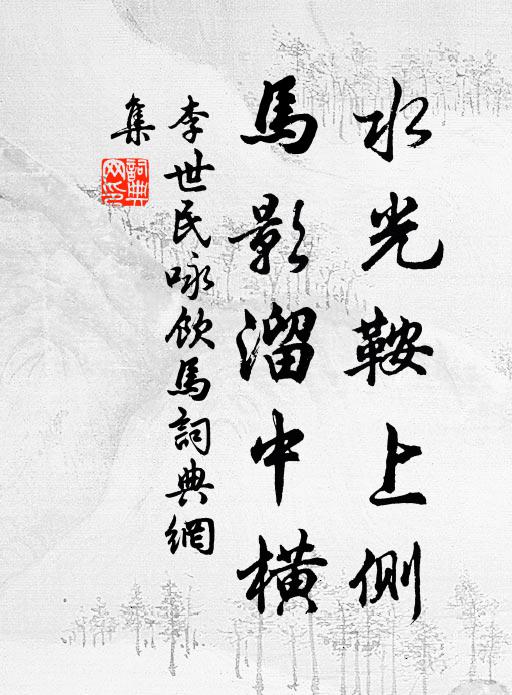 水光鞍上側
馬影溜中橫
李世民咏飲馬詞典網
集
詞典
网印